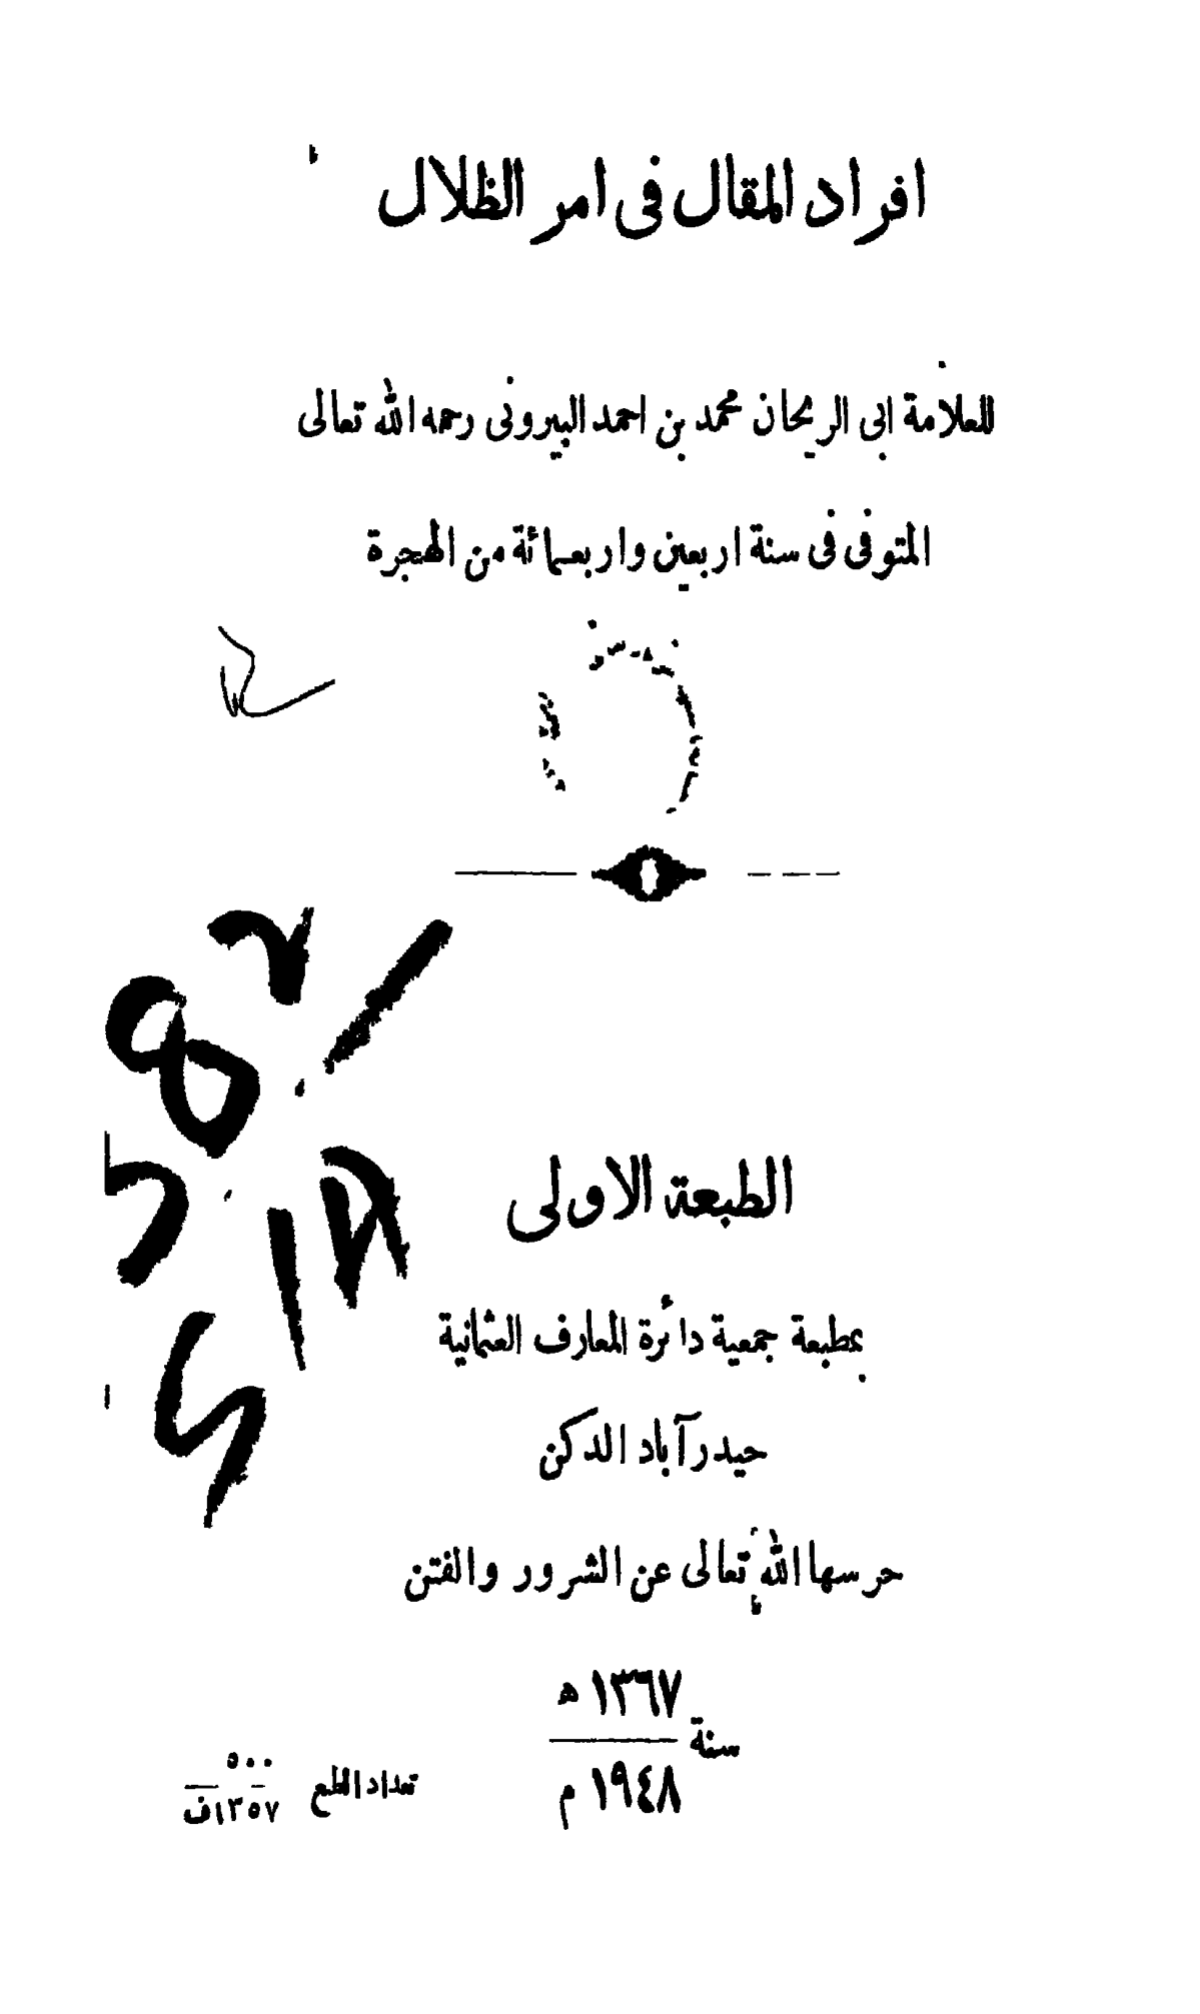 افراد المقال فى امر الظلال
للعلامة ابى الريحان محمد بن احمد البيرونى رحمه الله تعالى
المتوفى فى سنة اربعين واربعمائة من الهجرة
الطبعة الاولى
بمطبعة جمعية دائرة المعارف العثمانية
حيدرآباد الدكن
حرسها الله تعالى عن الشرور والفتن
سنة ١٣٦٧ ھ
١٩٤٨ م
تعداد الطبع ٥٠٠
١٣٥٧ف